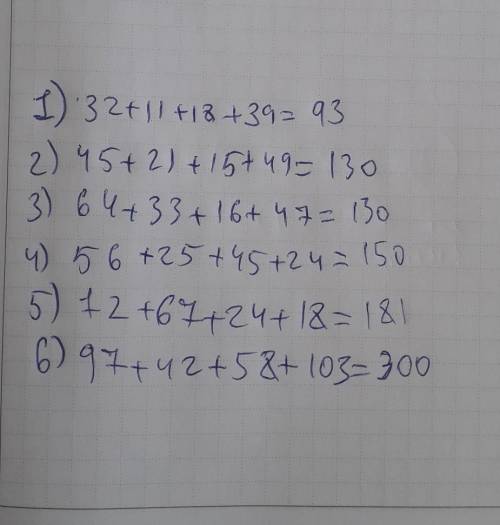 1) 32+11+18+39=93
2) 45+21+15+49=130
3) 64+33+16+47=130
4) 56+25+45+24=150
5) 72+67+24+18=181
6) 97+42+58+103=300